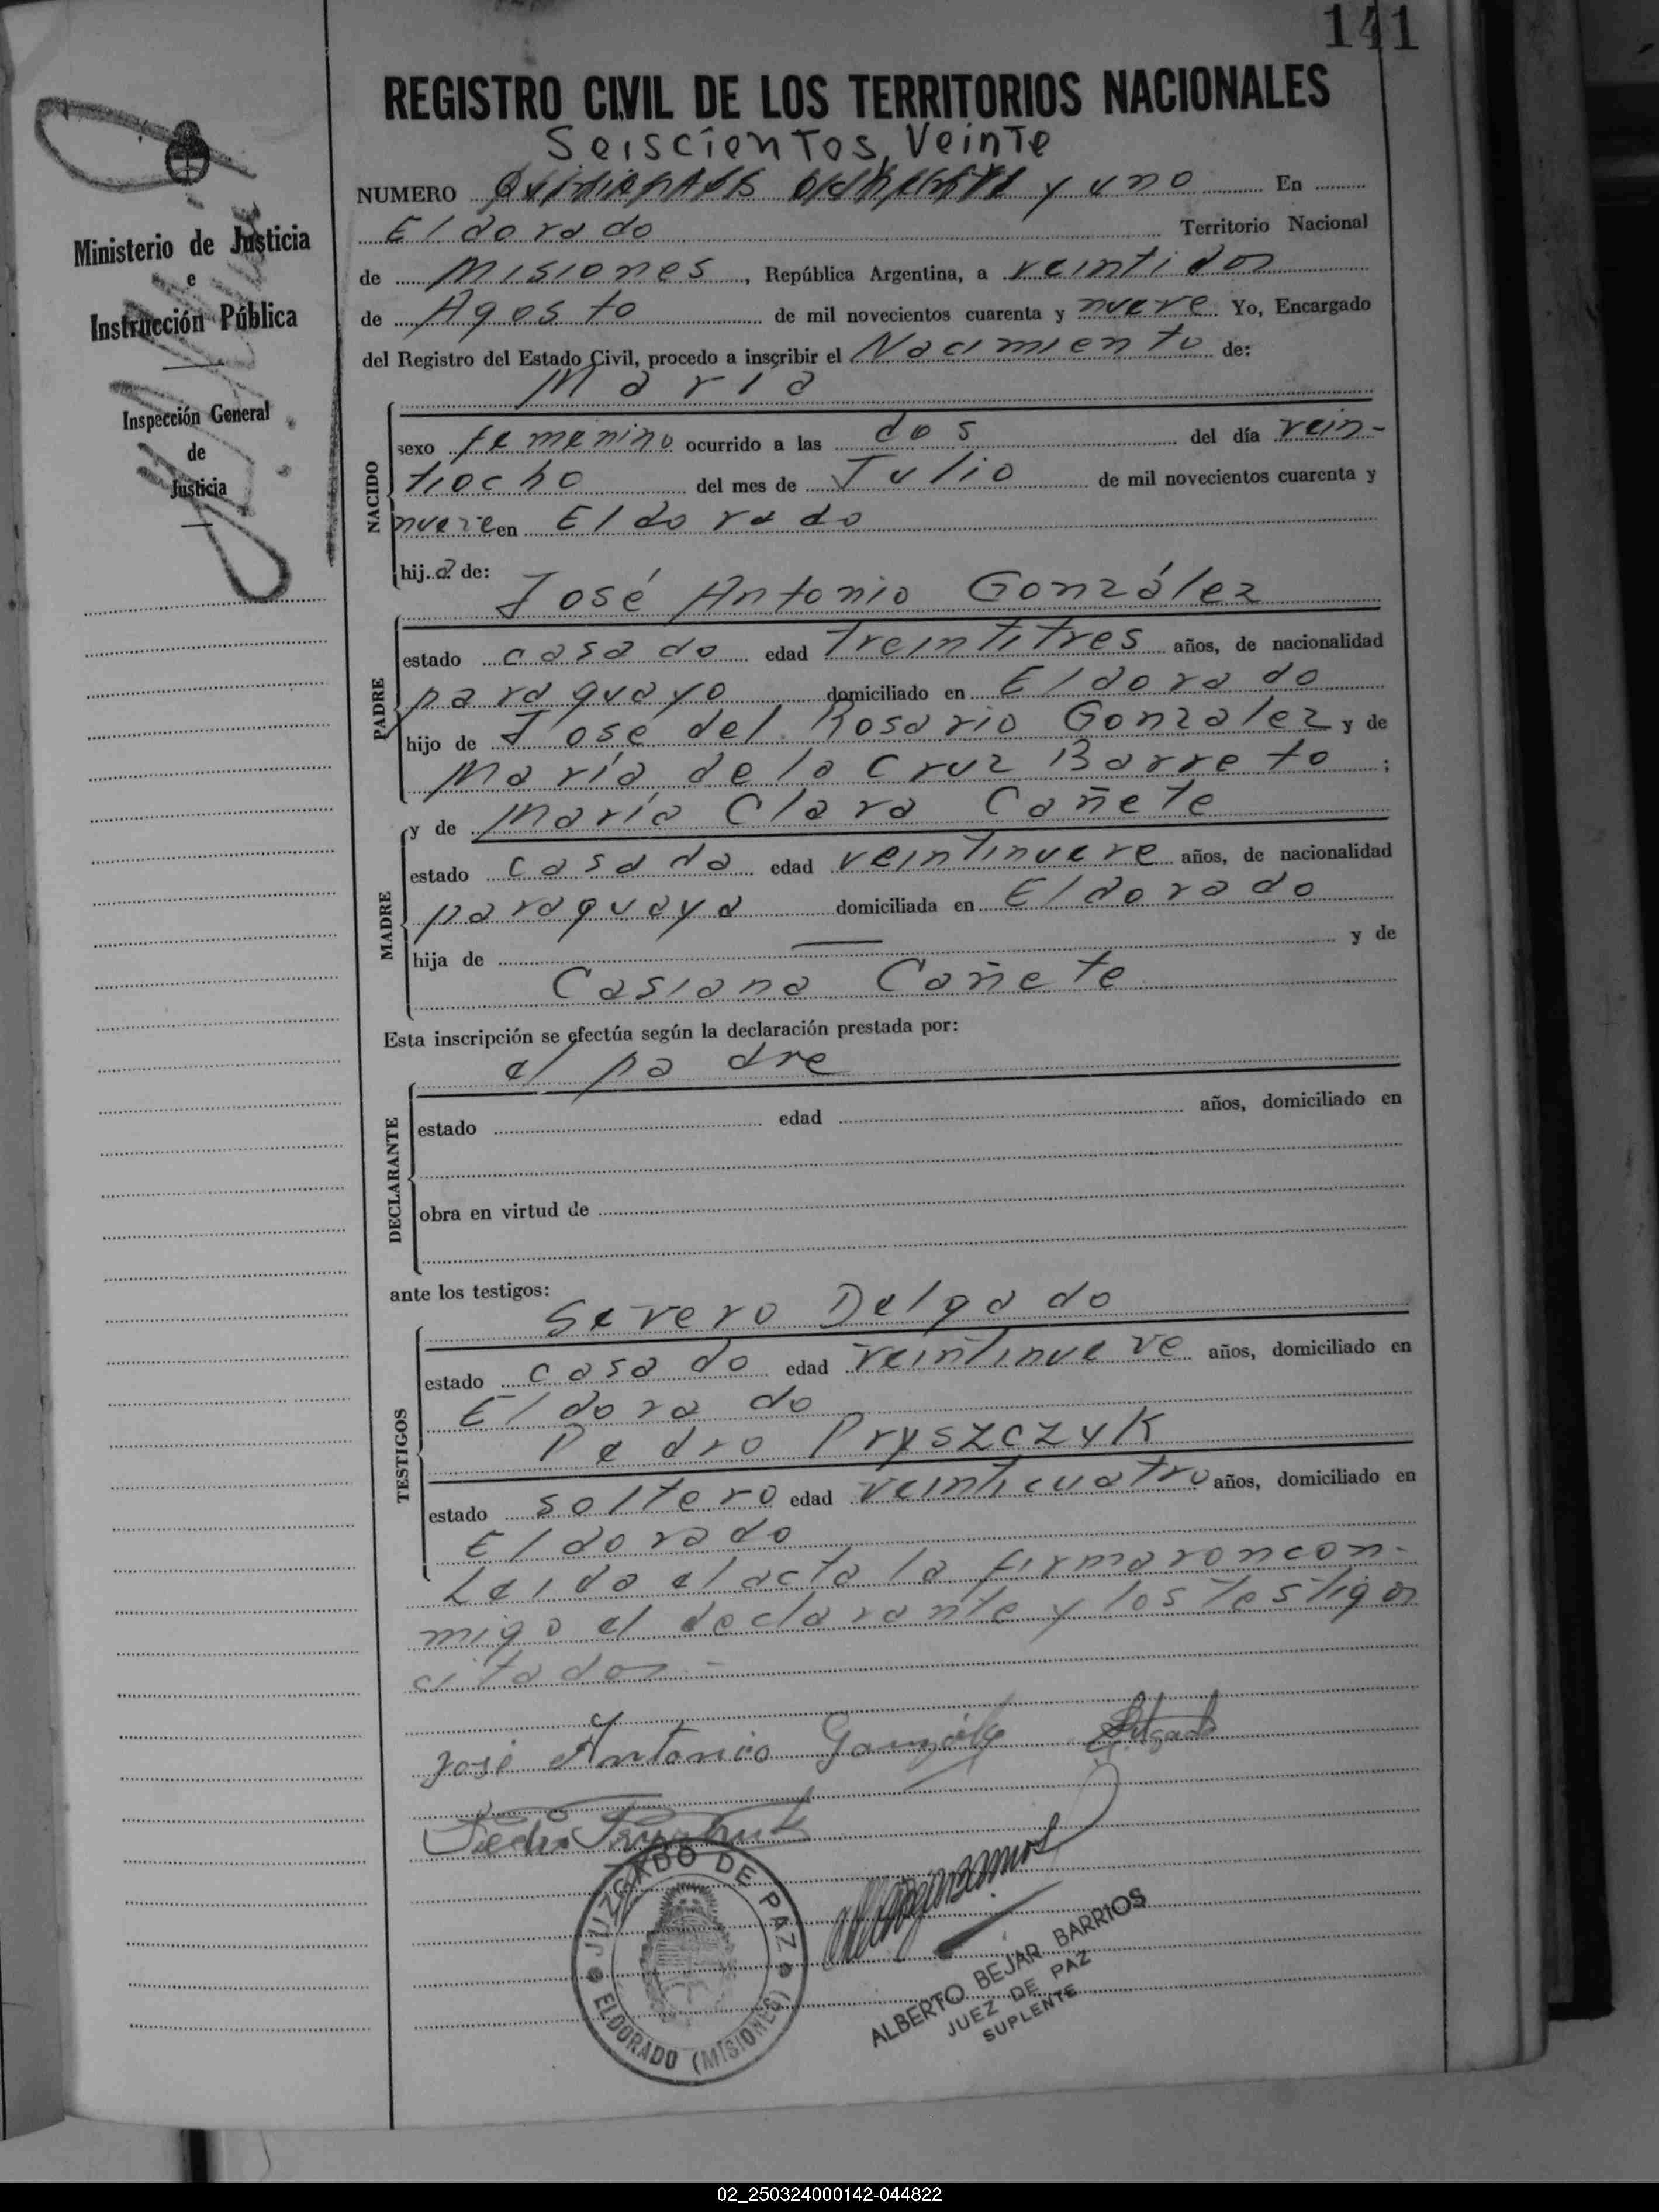 141
REGISTRO CIVIL DE LOS TERRITORIOS NACIONALES
Seiscientos, Veinte
NUMERO y uno En
Eldorado Territorio Nacional
de Misiones, República Argentina, a veintidos
de Agosto de mil novecientos cuarenta y nueve Yo, Encargado
del Registro del Estado Civil, procedo a inscribir el Nacimiento de:
María
NACIDO
sexo femenino ocurrido a las dos del día vein-
tiocho del mes de Julio de mil novecientos cuarenta y
nueve en Eldorado
hij a de:
José Antonio González
PADRE
estado casado edad treintitres años, de nacionalidad
paraguayo domiciliado en Eldorado
hijo de José del Rosario Gonzalez y de
María de la Cruz Barreto ;
MADRE
y de María Clara Cañete
estado casada edad veintinueve años, de nacionalidad
paraguaya domiciliada en Eldorado
hija de — y de
Casiana Cañete
Esta inscripción se efectúa según la declaración prestada por:
el padre
DECLARANTE
estado edad años, domiciliado en
obra en virtud de
ante los testigos:
Severo Delgado
TESTIGOS
estado casado edad veintinueve años, domiciliado en
Eldorado
Pedro Pryszczyk
estado soltero edad veinticuatro años, domiciliado en
Eldorado
Leida el acta la firmaron con-
migo el declarante y los testigos
citados.-
José Antonio González
Delgado
Pedro
Ministerio de Justicia
e
Instrucción Pública
Inspección General
de
Justicia
JUZGADO DE PAZ
ELDORADO (MISIONES)
ALBERTO BEJAR BARRIOS
JUEZ DE PAZ
SUPLENTE
02_250324000142-044822